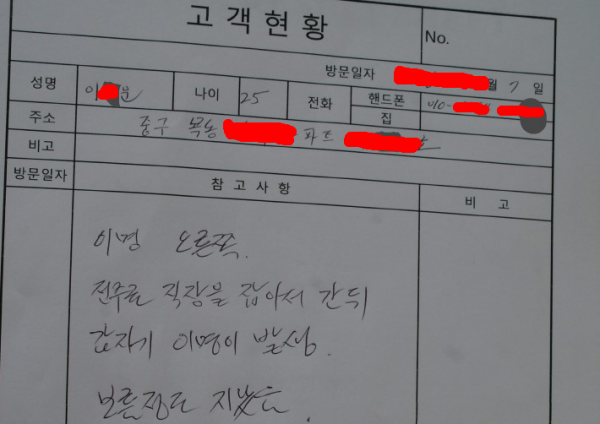 고객현황
No.
방문일자 월 7 일
성명 이 나이 25 전화 핸드폰 010-
집
주소 중구 파트
비고
방문일자 참고사항 비고
이명 오른쪽.
전주로 직장을 잡아서 간뒤
갑자기 이명이 발생.
보름정도 지났음.